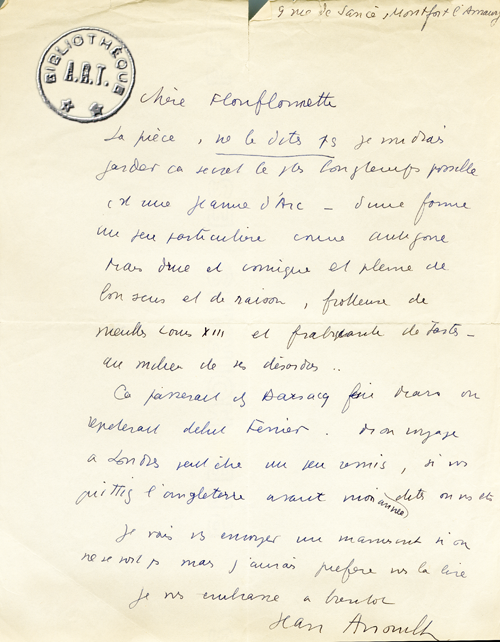 9 rue de Sancé, Montfort l'Amaury
BIBLIOTHÈQUE
A.R.T.
Chère Flonflonnette
La pièce, ne le dites ps je voudrais
garder ça secret le ps longtemps possible
c'est une Jeanne d'Arc - d'une forme
un peu particulière comme antigone
mais drue et comique et pleine de
bon sens et de raison, frotteuse de
meubles Louis XIII et
au milieu de ses désordres ..
Ça passerait ds Barsacq fin mars on
répéterait début Février. Mon voyage
a Londres peut être un peu remis, si vs
quittez l'angleterre avant mon arrivée dites on vs êtes
Je vais vs envoyer un manuscrit si on
ne se voit ps mais j'aurais préféré vs la lire
Je vs embrasse a bientot
Jean Anouilh